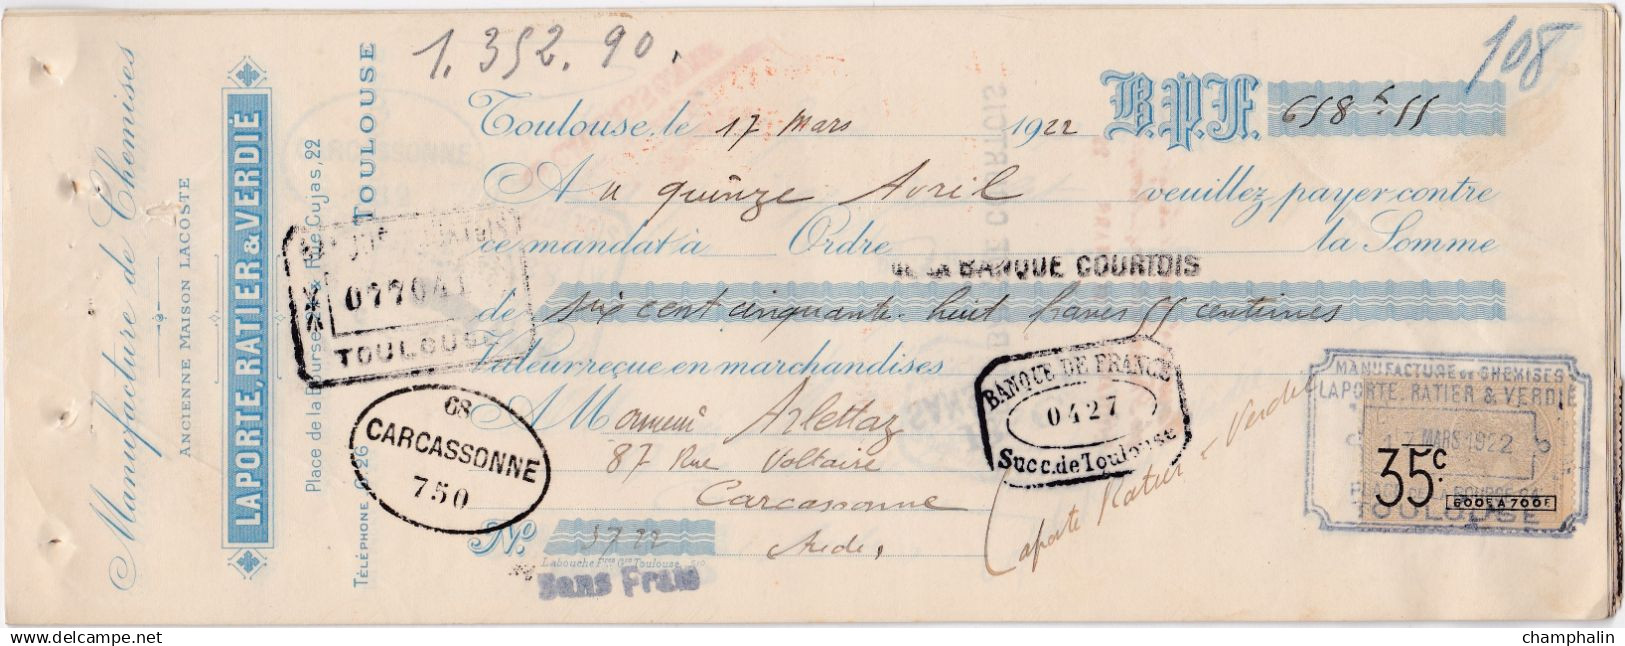 Manufacture de Chemises
ANCIENNE MAISON LACOSTE
LAPORTE, RATIER & VERDIÉ
Place de la Bourse & Rue Cujas, 22
TÉLÉPHONE 0,26
TOULOUSE
1.352.90.
108
Toulouse, le 17 Mars 1922 B.P.F. 658 f 55
Au quinze Avril veuillez payer contre
ce mandat à Ordre la Somme
de la BANQUE COURTOIS
de six cent cinquante huit francs 55 centimes
Valeur reçue en marchandises
077041
TOULOUSE
A Monsieur Arlettaz
87 Rue Voltaire
Carcassonne
Aude,
68
CARCASSONNE
750
BANQUE DE FRANCE
0427
Succ. de Toulouse
Laporte Ratier & Verdié
MANUFACTURE DE CHEMISES
LAPORTE, RATIER & VERDIÉ
17 MARS 1922
35c
600F A 700F
TOULOUSE
No. 3722
Labouche Fres Gre Toulouse
Sans Frais
delcampe.net
champhalin